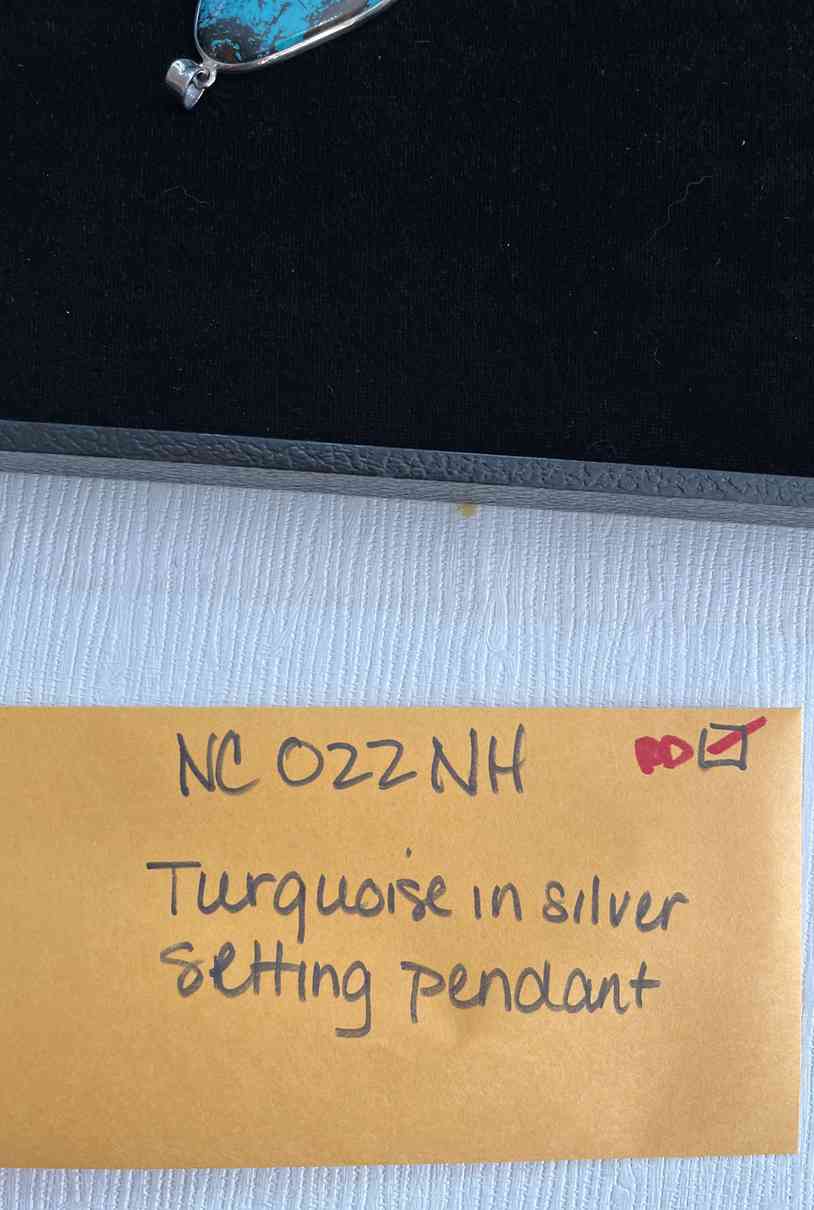 NC 022 NH
Turquoise in silver
setting pendant